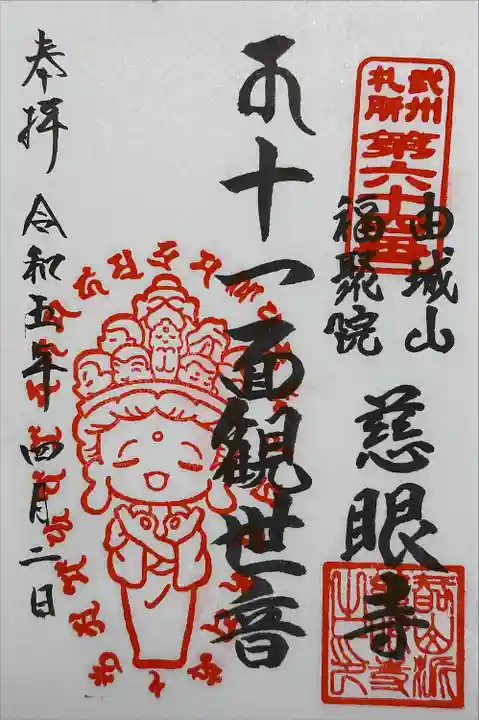 武州
札所
第六十番
由城山
福聚院
慈眼寺
十一面観世音
奉拝 令和五年四月二日